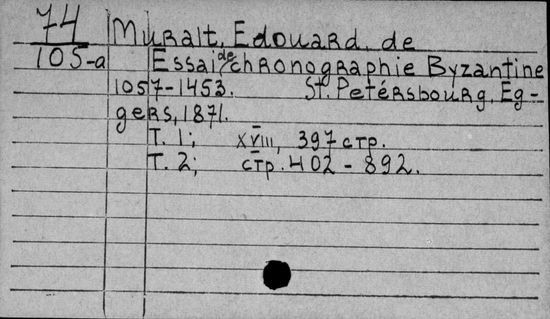 74
105-a
Muralt, Edouard, de
Essai de chronographie Byzantine
1057-1453. St. Petérsbourg, Eg-
gers, 1871.
T. 1; XVIII, 397 стр.
T. 2; стр. 402 - 892.